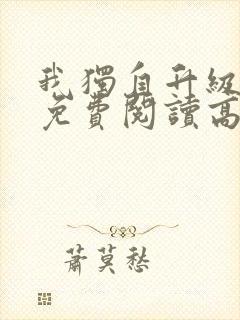 我獨自升級
免費閱讀高
蕭莫愁